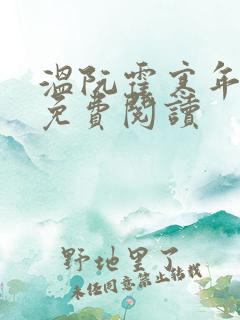 溫阮霍寒年
免費閱讀
野地里了
未经同意禁止转载